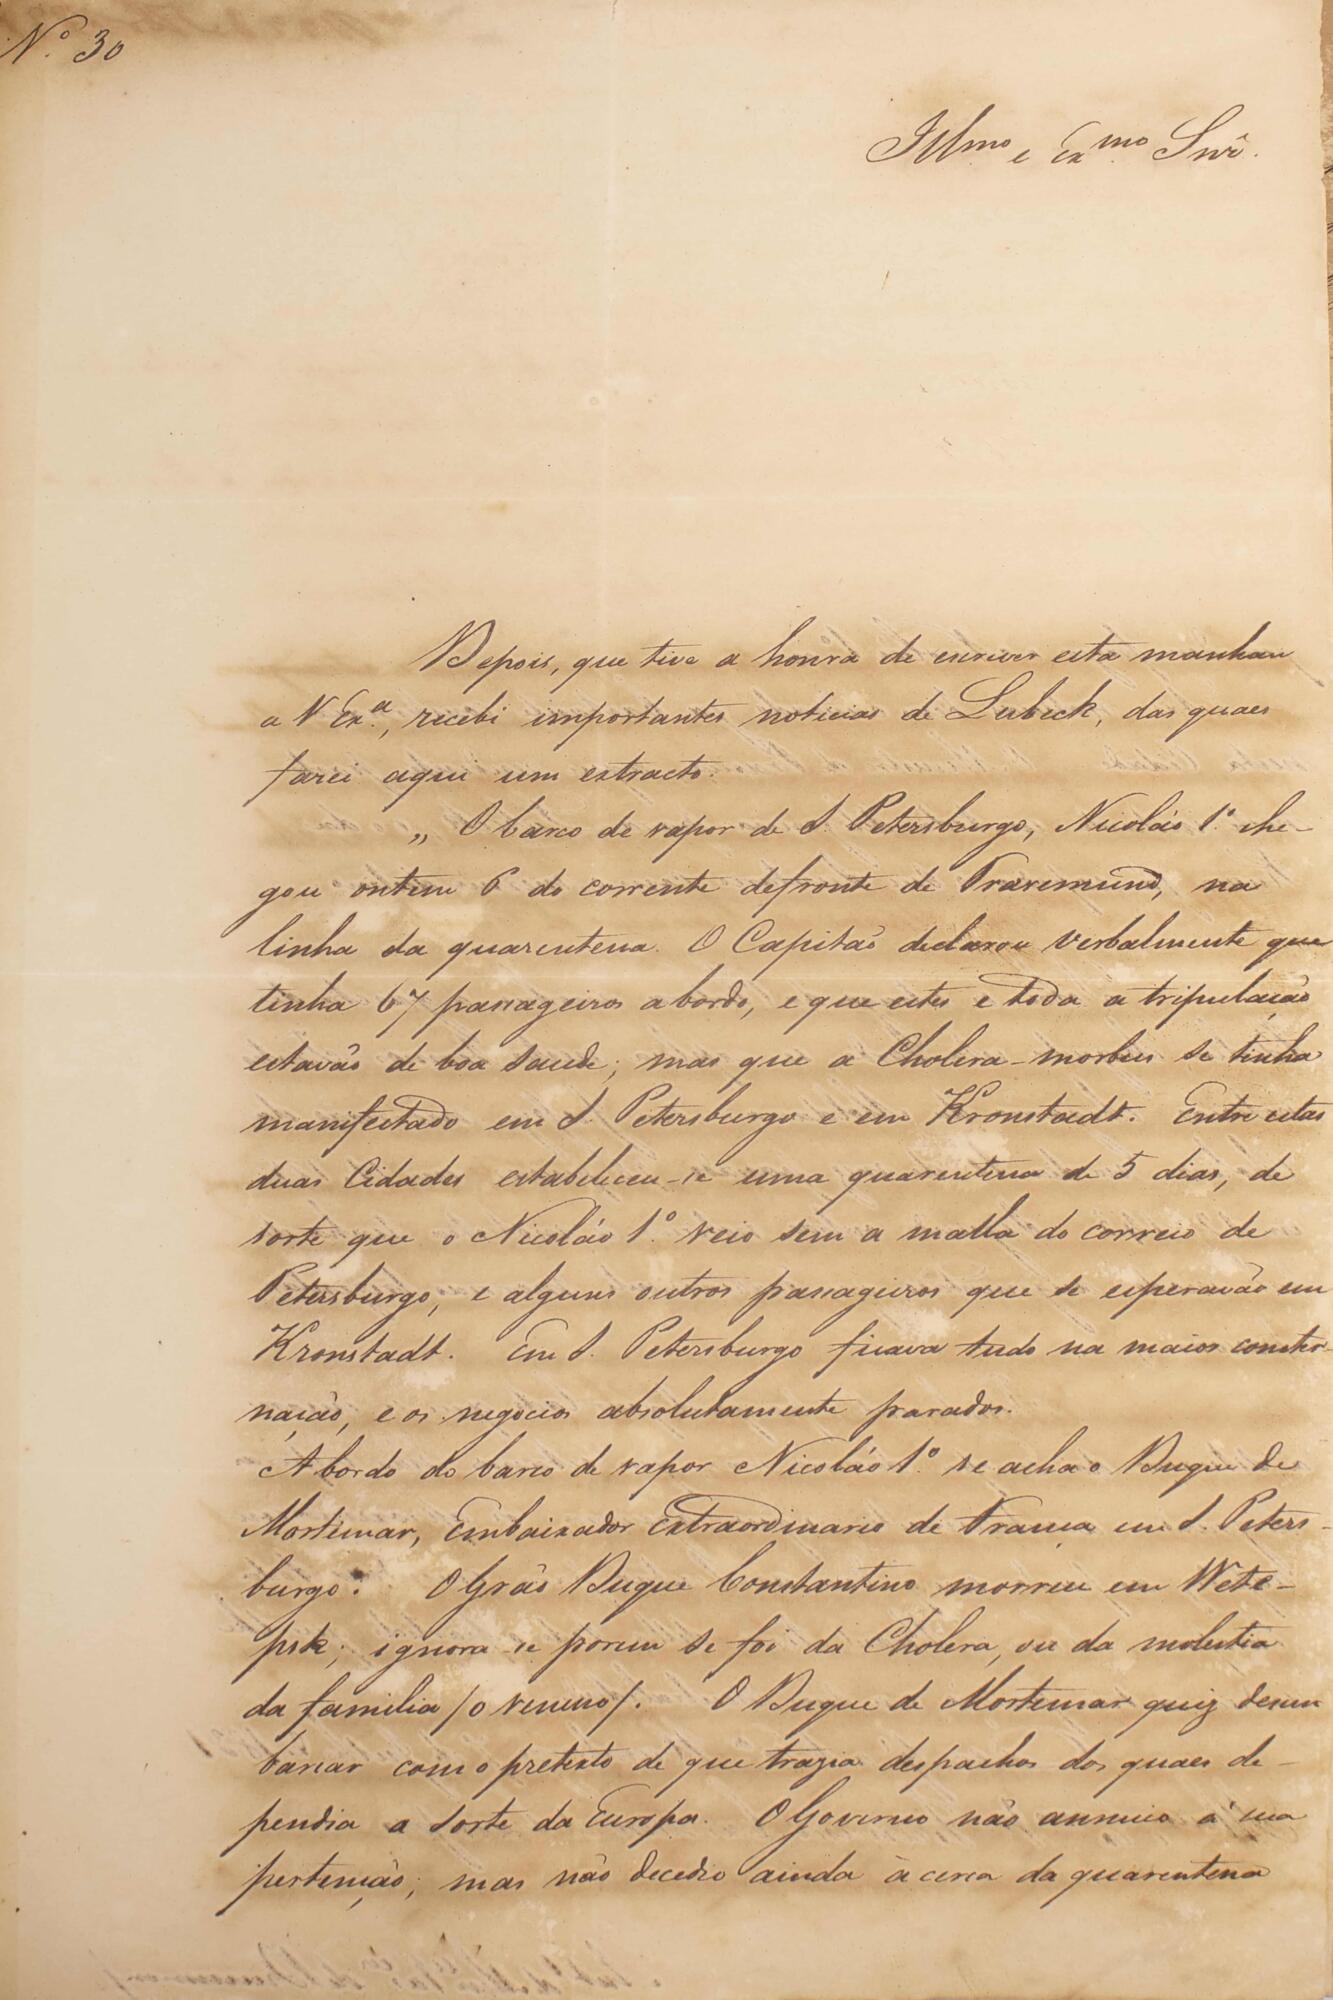 Nº 30
Illmo e Exmo Snr̂.
Depois, que tive a honra de escrever esta manhan
a V Exª, recebi importantes noticias de Lubeck, das quaes
farei aqui um extracto.
„ O barco de vapor de S. Petersburgo, Nicoláo 1º che-
gou ontem 6 do corrente defronte de Travemund, na
linha da quarentena. O Capitão declarou verbalmente que
tinha 67 passageiros a bordo, e que estes e toda a tripulação
estavão de boa saude; mas que a Cholera-morbus se tinha
manifestado em S. Petersburgo e em Kronstadt. Entre estas
duas Cidades estabeleceu-se uma quarentena de 5 dias, de
sorte que o Nicoláo 1º veio sem a malla do correio de
Petersburgo, e alguns outros passageiros que se esperavão em
Kronstadt. Em S. Petersburgo ficava tudo na maior conster-
nação, e os negocios absolutamente parados.
A bordo do barco de vapor Nicoláo 1º se acha o Duque de
Mortimar, Embaixador Extraordinario de França em S. Peters-
burgo. O Grão Duque Constantino morreu em Wete-
psk; ignora-se porem se foi da Cholera, ou da molestia
da familia /o veneno/. O Duque de Mortimar quiz desem
barcar com o pretexto de que trazia despachos dos quaes de-
pendia a sorte da Europa. O Governo não annuio á sua
pertenção; mas não decedio ainda à cerca da quarentena